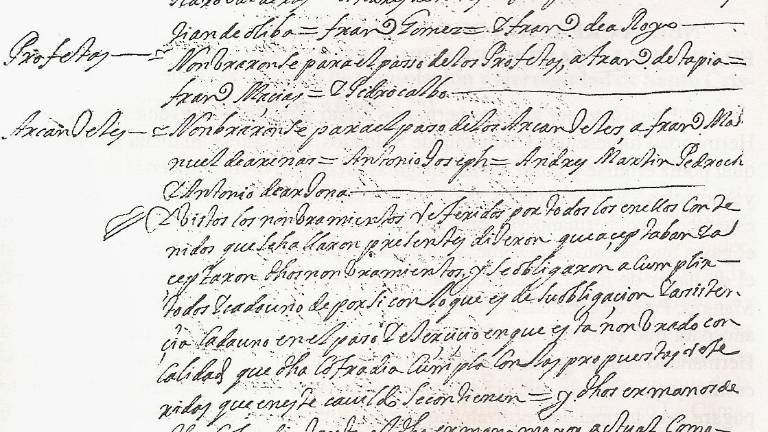 Jian de oliba = franco Gomez = & franco de a Royo
Profetas — Nonbraronse para el passo de los Profetas, a franco de tapia =
franco Macias = & Pedro calbo
Arcanxeles — Nonbraronse para el paso de los Arcanxeles, a franco Ma
nuel de arenas = Antonio Joseph = Andres Martin Pedroch
& Antonio de ardona
& bistos los nonbramientos referidos por todos los en ellos conte
nidos que se hallaron presentes dixeron que aceptaban & a
ceptaron dhos nonbramientos, y se obligaron a Cumplir
todos & cada uno de por si con lo que es de su obligacion & asisten
cia Cada uno en el paso & exercicio en que esta nonbrado con
calidad que dha Cofradia Cumpla con las propuestas refe
ridas que en este cavildo se contienen = y dhos ermanos de